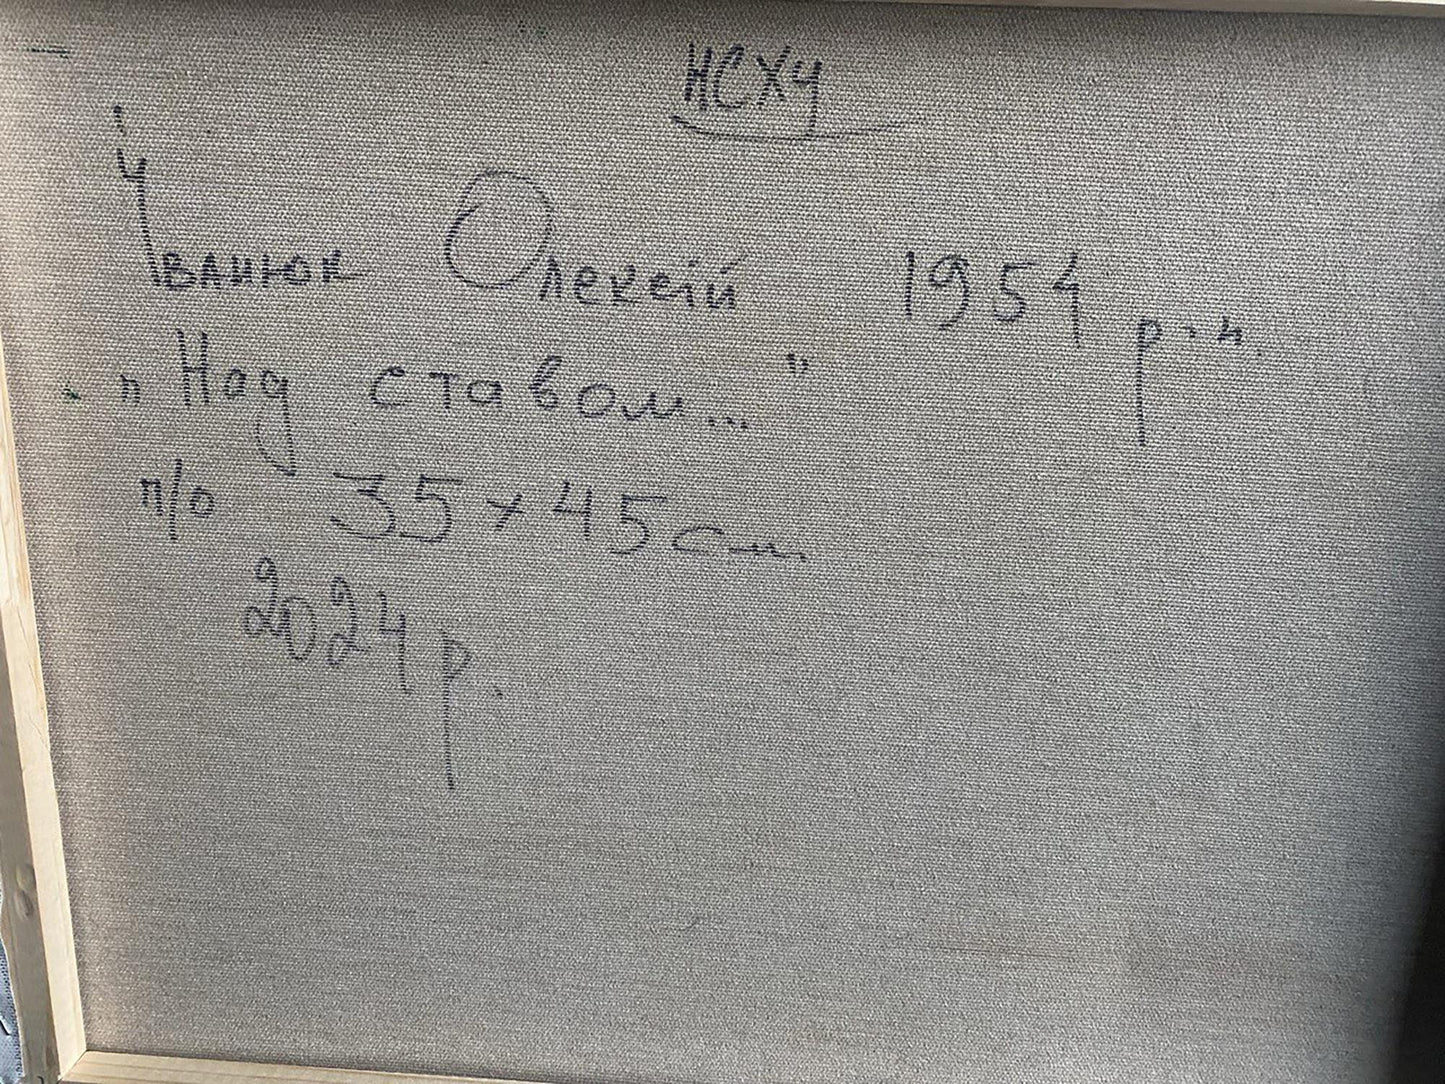 НСХУ
Іванюк Олексій 1954 р.н.
"Над ставом..."
п/о 35×45см.
2024р.